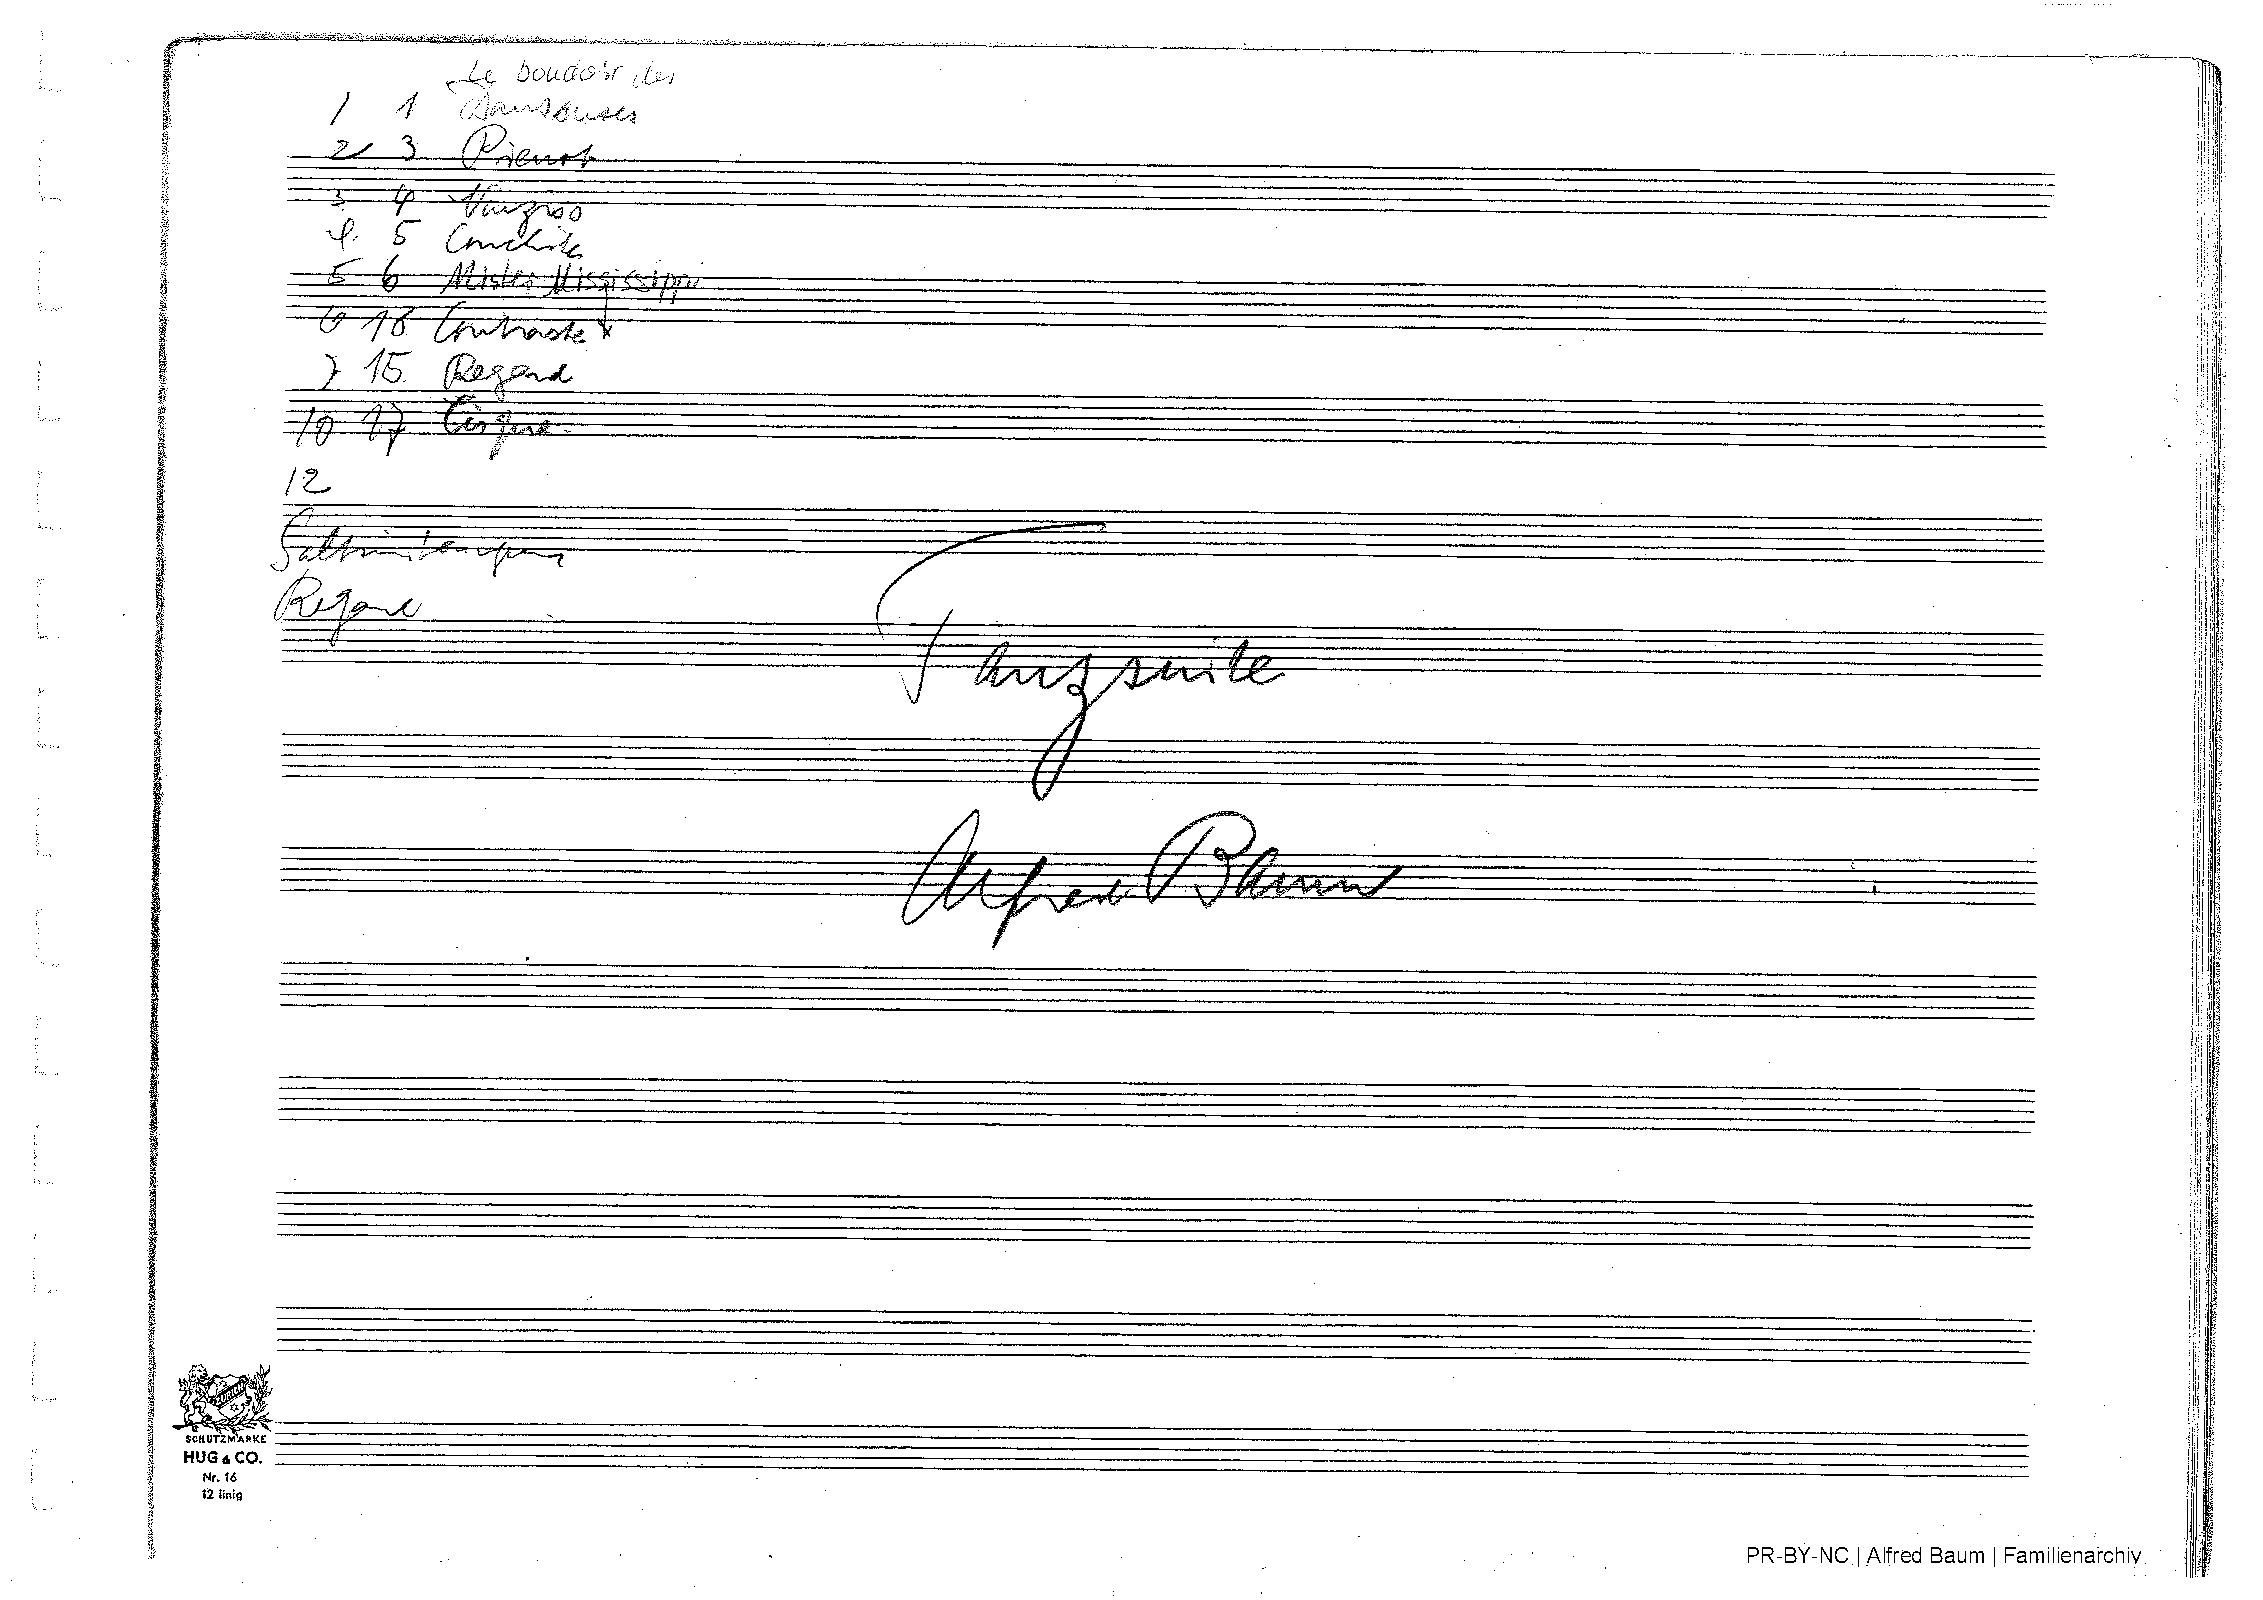 Le boudoir des
1 1 Danseuses
2 3 Pierrot
3. 4
4. 5 Conchita
5 6 Mister Mississippi
6 16 Contraste x
7 15. Regard
10 17 Cirque
12
Regard
Tanzsuite
Alfred Baum
SCHUTZMARKE
HUG & CO.
Nr. 16
12 linig
PR-BY-NC | Alfred Baum | Familienarchiv